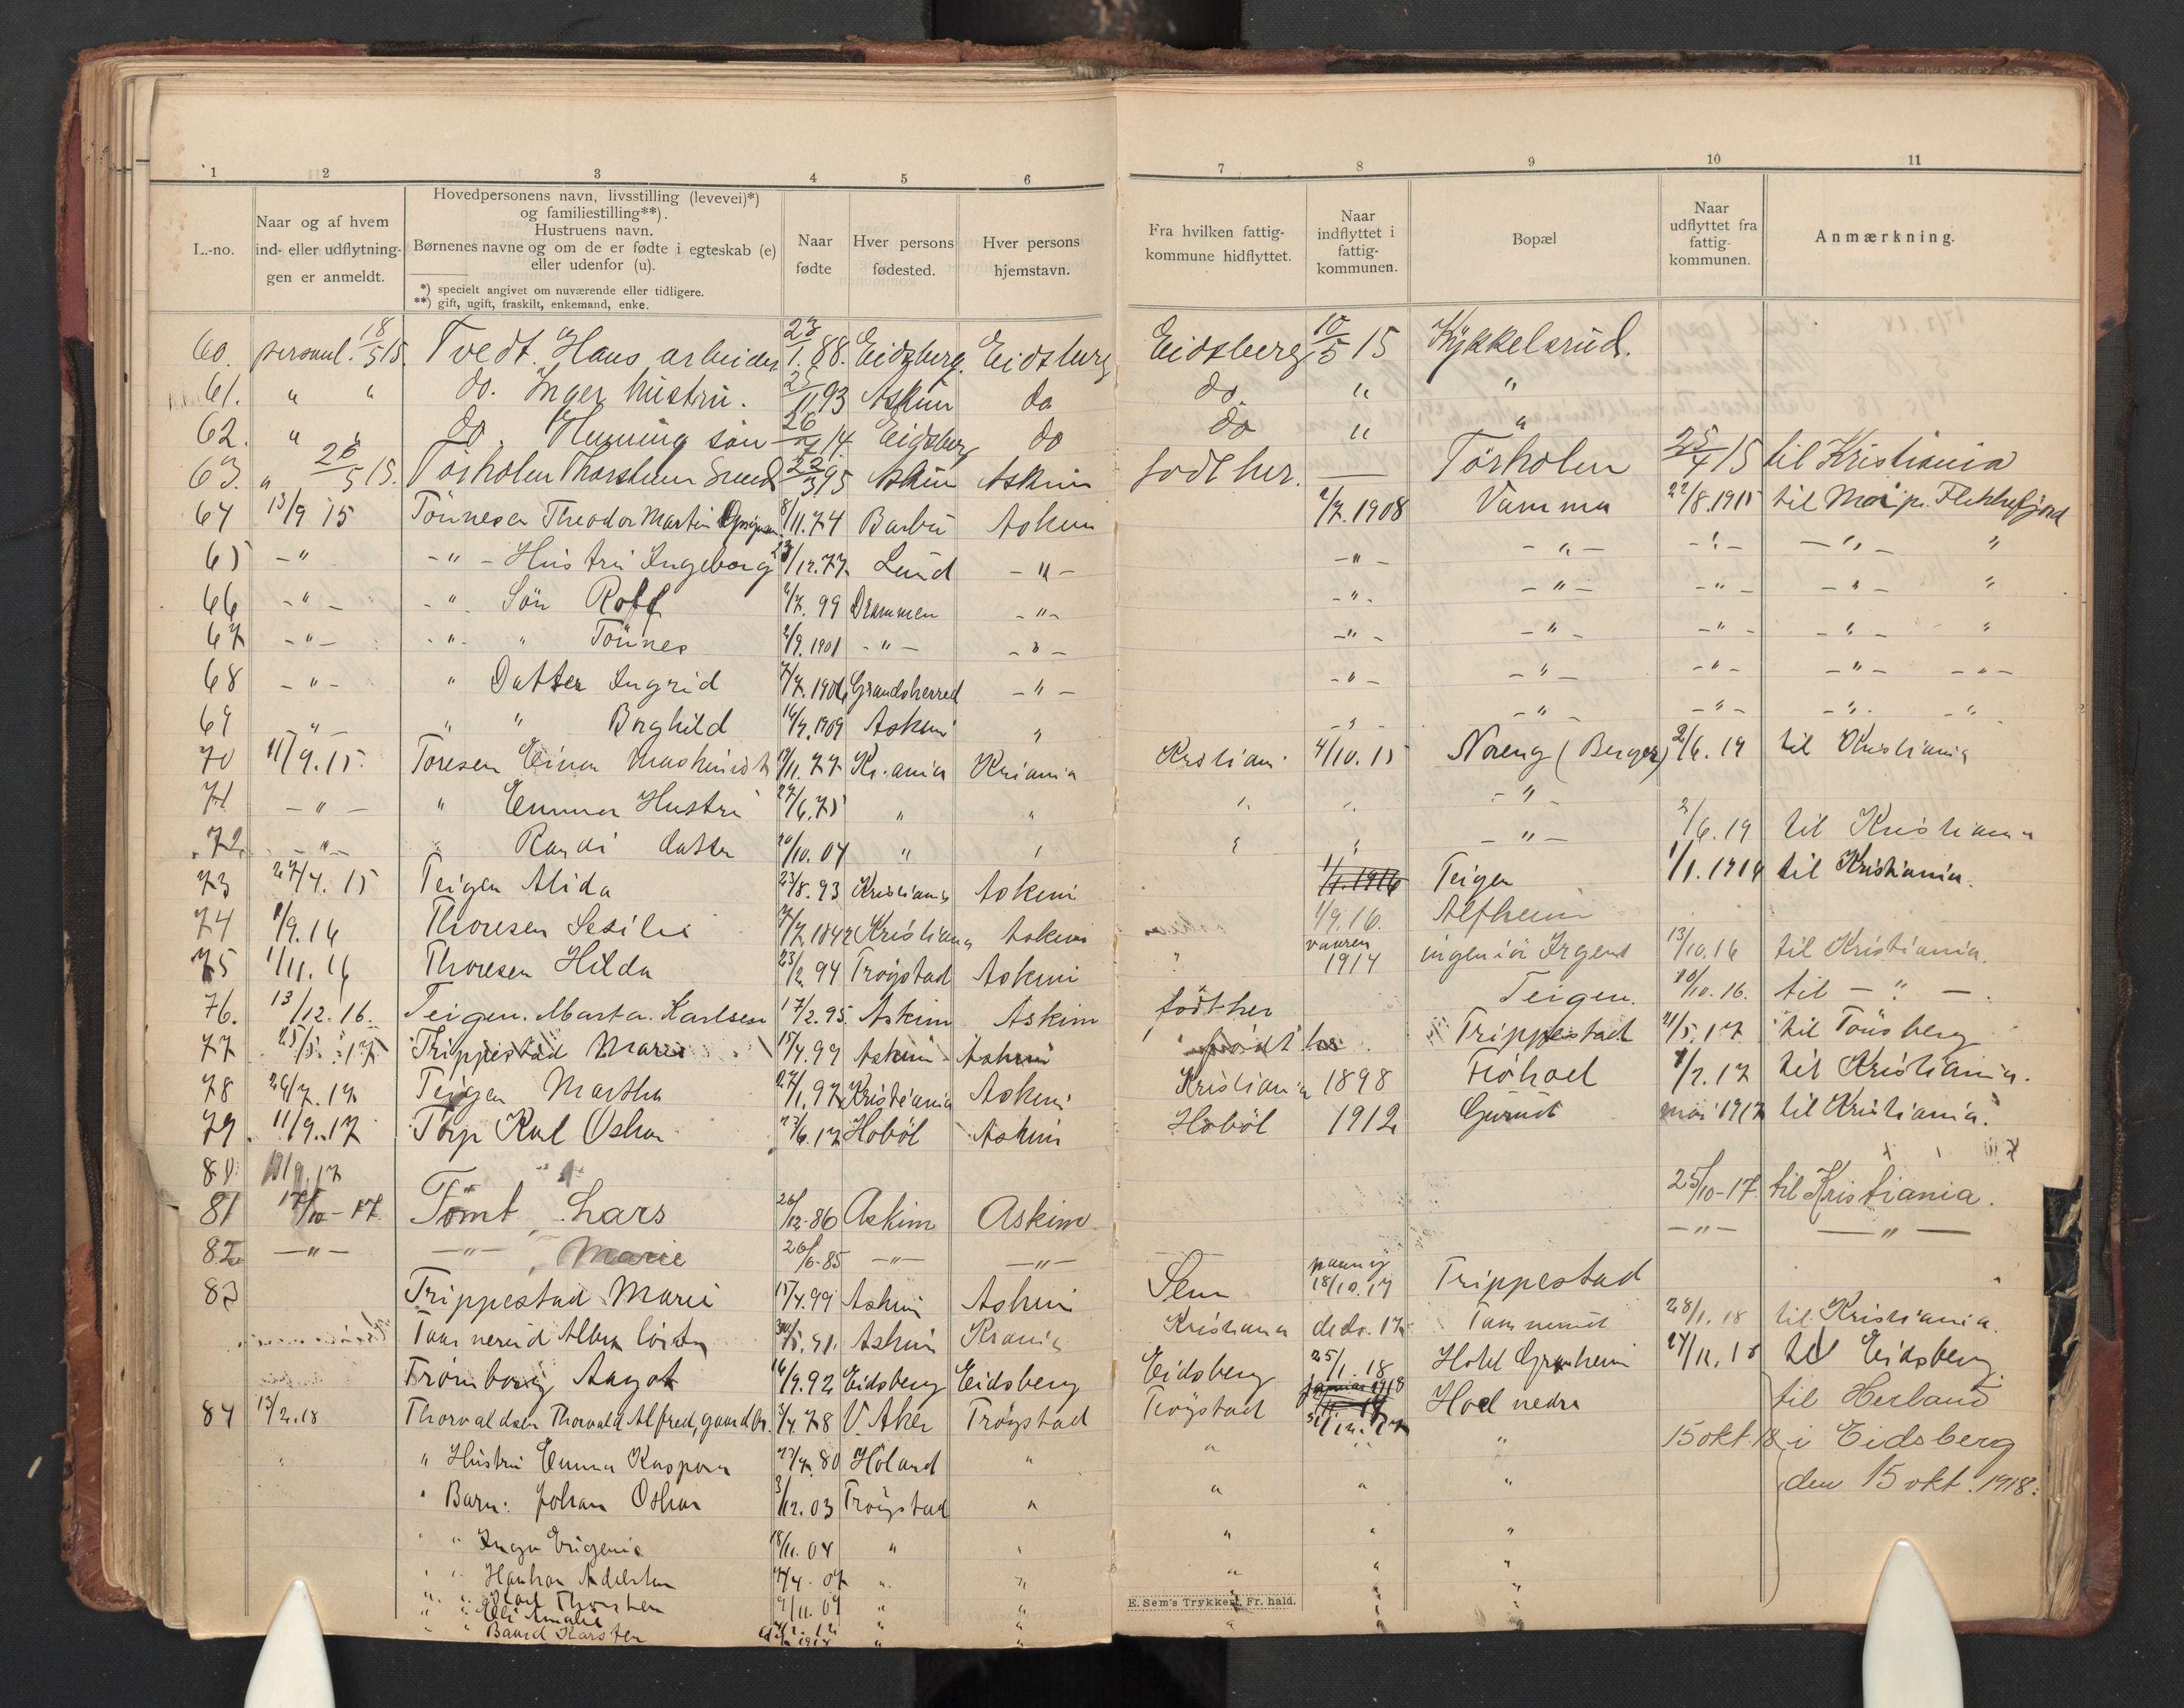 1 2 3 4 5 6 7 8 9 10 11
L.-no.
Naar og af hvem ind- eller udflytningen er anmeldt.
Hovedpersonens navn, livsstilling (levevei)*)
og familiestilling**).
Hustruens navn.
Børnenes navne og om de er fødte i egteskab (e)
eller udenfor (u).
*) specielt angivet om nuværende eller tidligere.
**) gift, ugift, fraskilt, enkemand, enke.
Naar fødte
Hver persons fødested.
Hver persons hjemstavn.
Fra hvilken fattigkommune hidflyttet.
Naar indflyttet i fattigkommunen.
Bopæl
Naar udflyttet fra fattigkommunen.
Anmærkning.
60. personl. 18/5 15. Tvedt. Hans arbeider 23/1. 88. Eidsberg. Eidsberg Eidsberg 10/5 15 Kykkelsrud.
61. " " do. Inger hustru. 25/11 93 Askim do do. " "
62. " " do. Henning søn 26/ 14. Eidsberg do do " "
63. " 26/5 15. Törholen Thorsteen 22/3 95 Askim Askim født her. — Törholen 25/4 15 til Kristiania
64 13/9 15 Tönnesen Theodor Martin 8/11. 74 Barbu Askim 1/7. 1908 Vamma 22/8. 1915 til Moi pr. Flekkefjord
65 -" -" - Hustru Ingeborg 23/12. 77 Lund - " - - " - - " - - " - - " - "
66 - " - - " Sön Rolf 6/7. 99 Drammen - " - - " - - " - - " - - " - "
67 - " - - " - " Tönnes 2/9. 1901 - " - - " - - " - - " - - " - - " - "
68 - " - " Datter Ingrid 7/7. 1906 Gransherred - " - - " - - " - - " - - " - - " -
69 - " - " " Borghild 16/7. 1909 Askim " - " - - " - - " - - " - - "
70 11/9. 15. Toresen Einar Maskinist 19/11. 77 Kr.ania Kr.ania Kristiani 4/10. 15 Noreng (Berger) 2/6. 19 til Kristiania
71 - " - " Emma Hustru 27/6. 75 " " " " - " -
72 - " - " Randi datter 20/10. 04 " " " " - " - 2/6. 19 til Kristiania
73 27/4. 15 Teigen Alida 23/8. 93 Kristiania Askim 1/1. 1916 Teigen 1/1. 1914 til Kristiania.
74 1/9. 16 Thoresen Sesilie 7/7. 1842 Kristiania Askim 1/9. 16. Altheim
75 1/11. 16 Thoresen Hilda 23/2. 94 Trøgstad Askim " vaaren 1914 ingeniör Irgens 13/10. 16 til Kristiania.
76. 13/12. 16. Teigen. Marta. Karlsen 17/2. 95. Askim Askim født her Teigen. 10/10. 16. til - " -.
77 25/5. 17 Trippestad Marie 15/4. 99 Askim Askim født her. Trippestad 21/5. 17 til Tönsberg
78 26/7. 17 Teigen Martha 27/1. 97 Kristiania Askim Kristiania 1898 1/7. 17 til Kristiania.
79. 11/9. 17 Torp Karl Oskar 23/6. 17 Hobøl Askim Hobøl 1912 Gurud mai 1917 til Kristiania.
80 19/9. 17
81 17/10 - 17. Tömt Lars 26/12-86 Askim Askim 25/10-17. til Kristiania.
82 - " - - " - Marie 26/6-85 - " - - " - - " - - " -
83 Trippestad Marie 15/4. 99 Askim Askim Sem paany 18/10. 17 Trippestad
Tannerud 30/5. 91. Askim Kr.ania Kristiania desbr. 17 Tannerud 28/1. 18 til Kristiania.
Trömborg Aagot 16/9. 92 Eidsberg Eidsberg Eidsberg 25/1. 18 Hotel Granheim 27/11. 18 til Eidsberg
84 13/2. 18 Thorvaldsen Thorvald Alfred, gaardbr. 3/4. 78 V. Aker Trøgstad Trøgstad januar 1918 31/12. 17 Hoel nedre til Herland
" " Hustru Emma Kaspara 27/7. 80 Höland " " " " 15 okt. 18 i Eidsberg
" Barn: Johan Oskar 3/12. 03 Trøgstad " " " " den 15 okt. 1918.
" " Inga Eugenie 18/11. 04 " " " " "
" " Haakon Adelsten 14/4. 07 " " " " "
" " Karl Thorsten 9/11. 09 " " " " "
" " Elli Amalie 7/2. 12 " " " " "
" " Baard Karsten 1914 " " " " "
E. Sem's Trykkeri, Fr. hald.